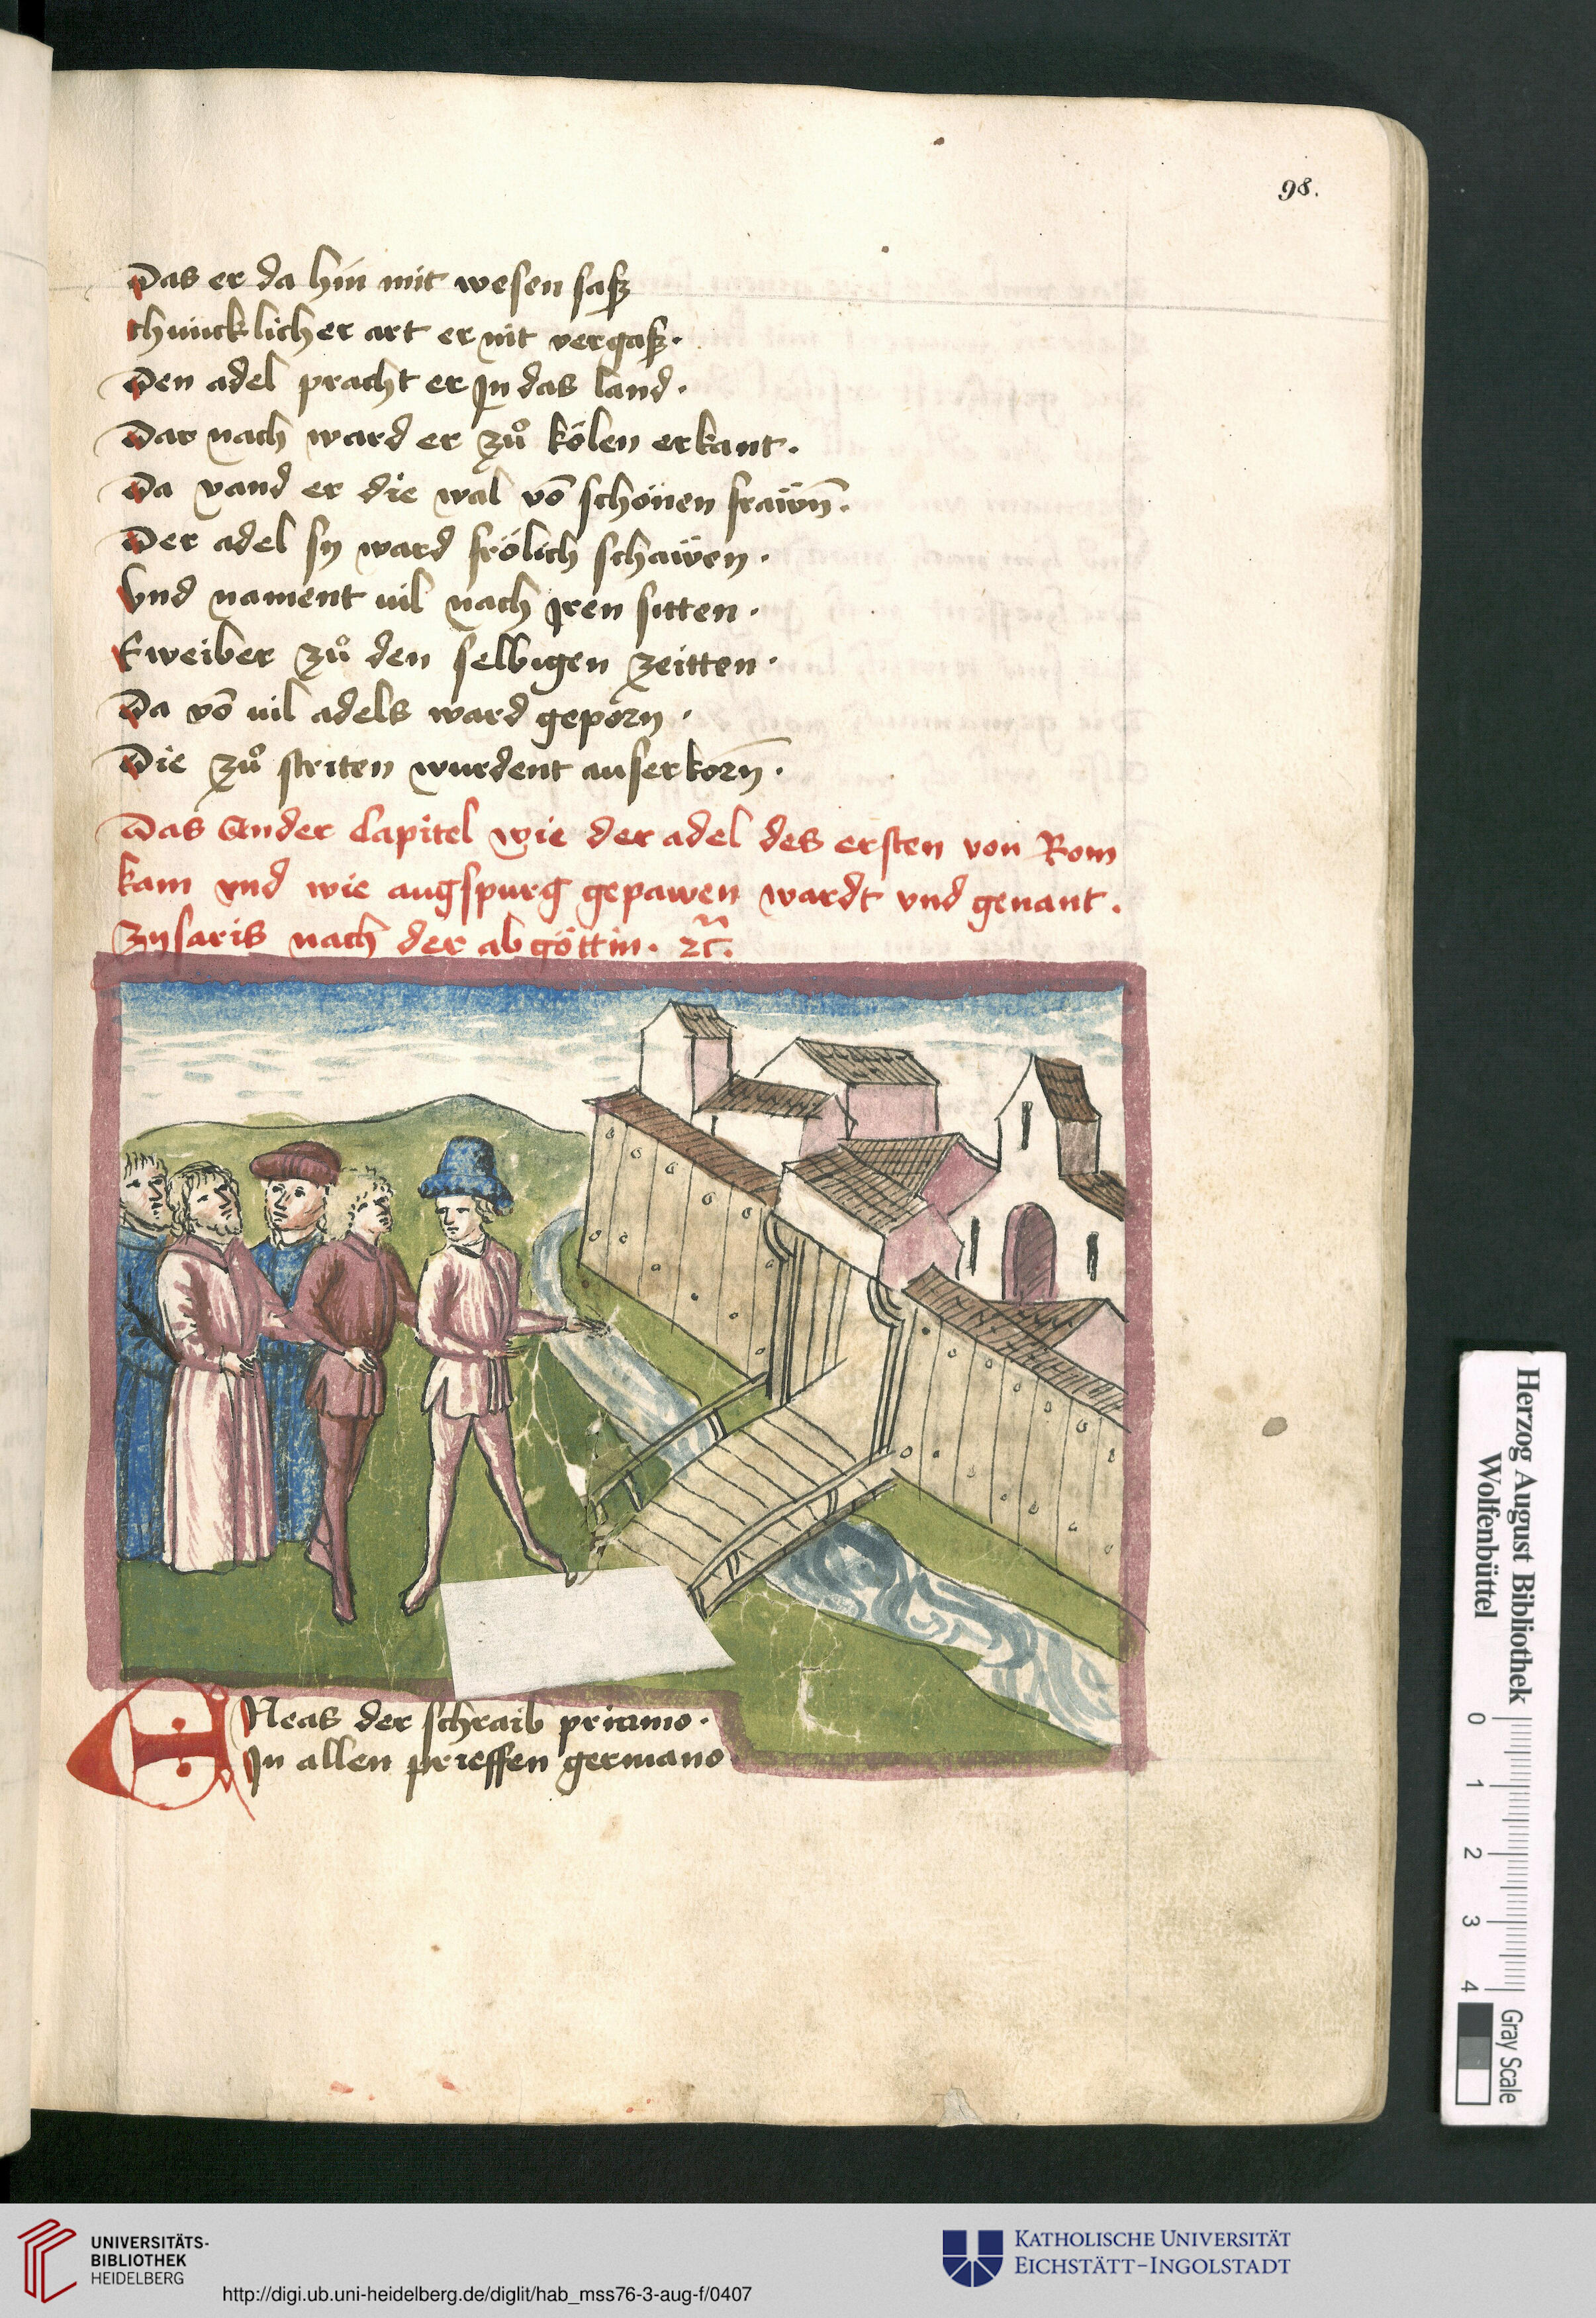 98.
Das er da hin mit wesen saſz
chünicklicher art er nit vergaſz.
Den adel pracht er jn das land.
Dar nach ward er zů kölen erkant.
Da vand er die wal vō schönen frawñ.
Der adel sy ward frölich schawen.
Vnd nament vil nach jren sitten.
Eweiber zů den selbigen zeitten.
Da vō vil adels ward geporn.
Die zů striten wurdent auserkorñ.
Das Ander Capitel wie der adel des ersten von Rom
kam vnd wie augspurg gepawen wardt vnd genant.
Zysaris nach der abgöttin. ⁊c̃.
ENeas der schraib priamo.
In allen prieffen germano
Herzog August Bibliothek
Wolfenbüttel
0 1 2 3 4
Gray Scale
UNIVERSITÄTS-
BIBLIOTHEK
HEIDELBERG
http://digi.ub.uni-heidelberg.de/diglit/hab_mss76-3-aug-f/0407
KATHOLISCHE UNIVERSITÄT
EICHSTÄTT-INGOLSTADT